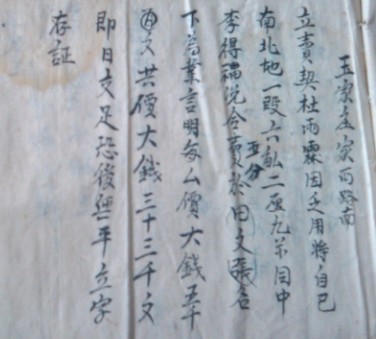 王家庄家西路南
立賣契杜雨霖因乏用將自己
南北地一段六畝二厘九毛目中
五分
李得福説合賣於田文張名
下為業言明每厶價大錢五千
百文共價大錢三十三千文
即日交足恐後無平立字
存証